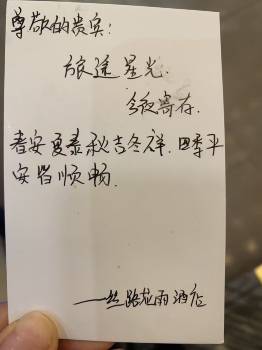 尊敬的贵宾:
旅途星光.
今夜寄存.
春安夏泰秋吉冬祥.四季平
安皆顺畅.
——丝路花雨酒店